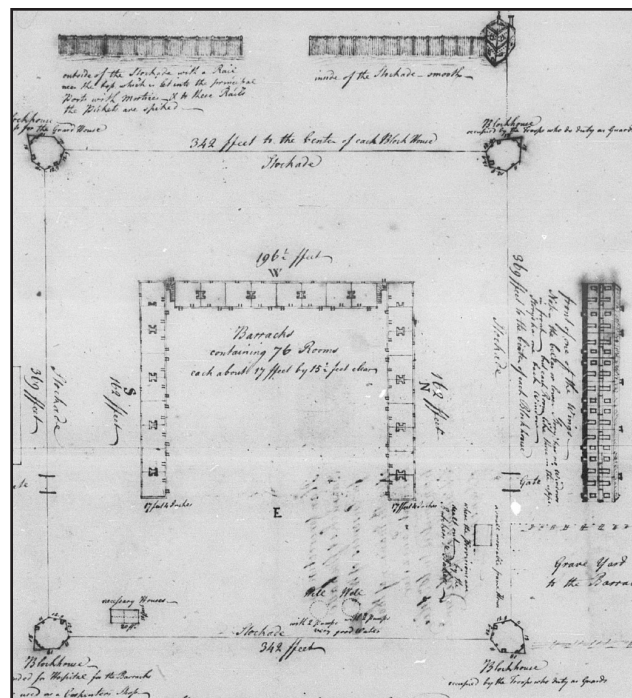 outside of the Stockade with a Rail
near the top which is let into the principal
Posts with Mortice & to these Rails
the Pickets are spiked
inside of the Stockade smooth
Blockhouse
for the Guard House
Blockhouse
occupied by the Troops who do duty as Guards
342 ffeet to the Center of each Block House
Stockade
196½ ffeet
W
Barracks
containing 76 Rooms
each about 17 ffeet by 15½ feet clear
S
162 ffeet
N
162 ffeet
Stockade
369 ffeet
Stockade
369 ffeet to the Center of each Blockhouse
front of one of the Wings
Gate
E
17 feet 4 Inches
17 feet 4 Inches
Grave Yard
to the Barrac
necessary Houses
Well Well
with 2 pumps
very good Water
Stockade
342 ffeet
Blockhouse
ded for Hospital for the Barracks
used as a Carpenters Shop
Blockhouse
occupied by the Troops who duty as Guards